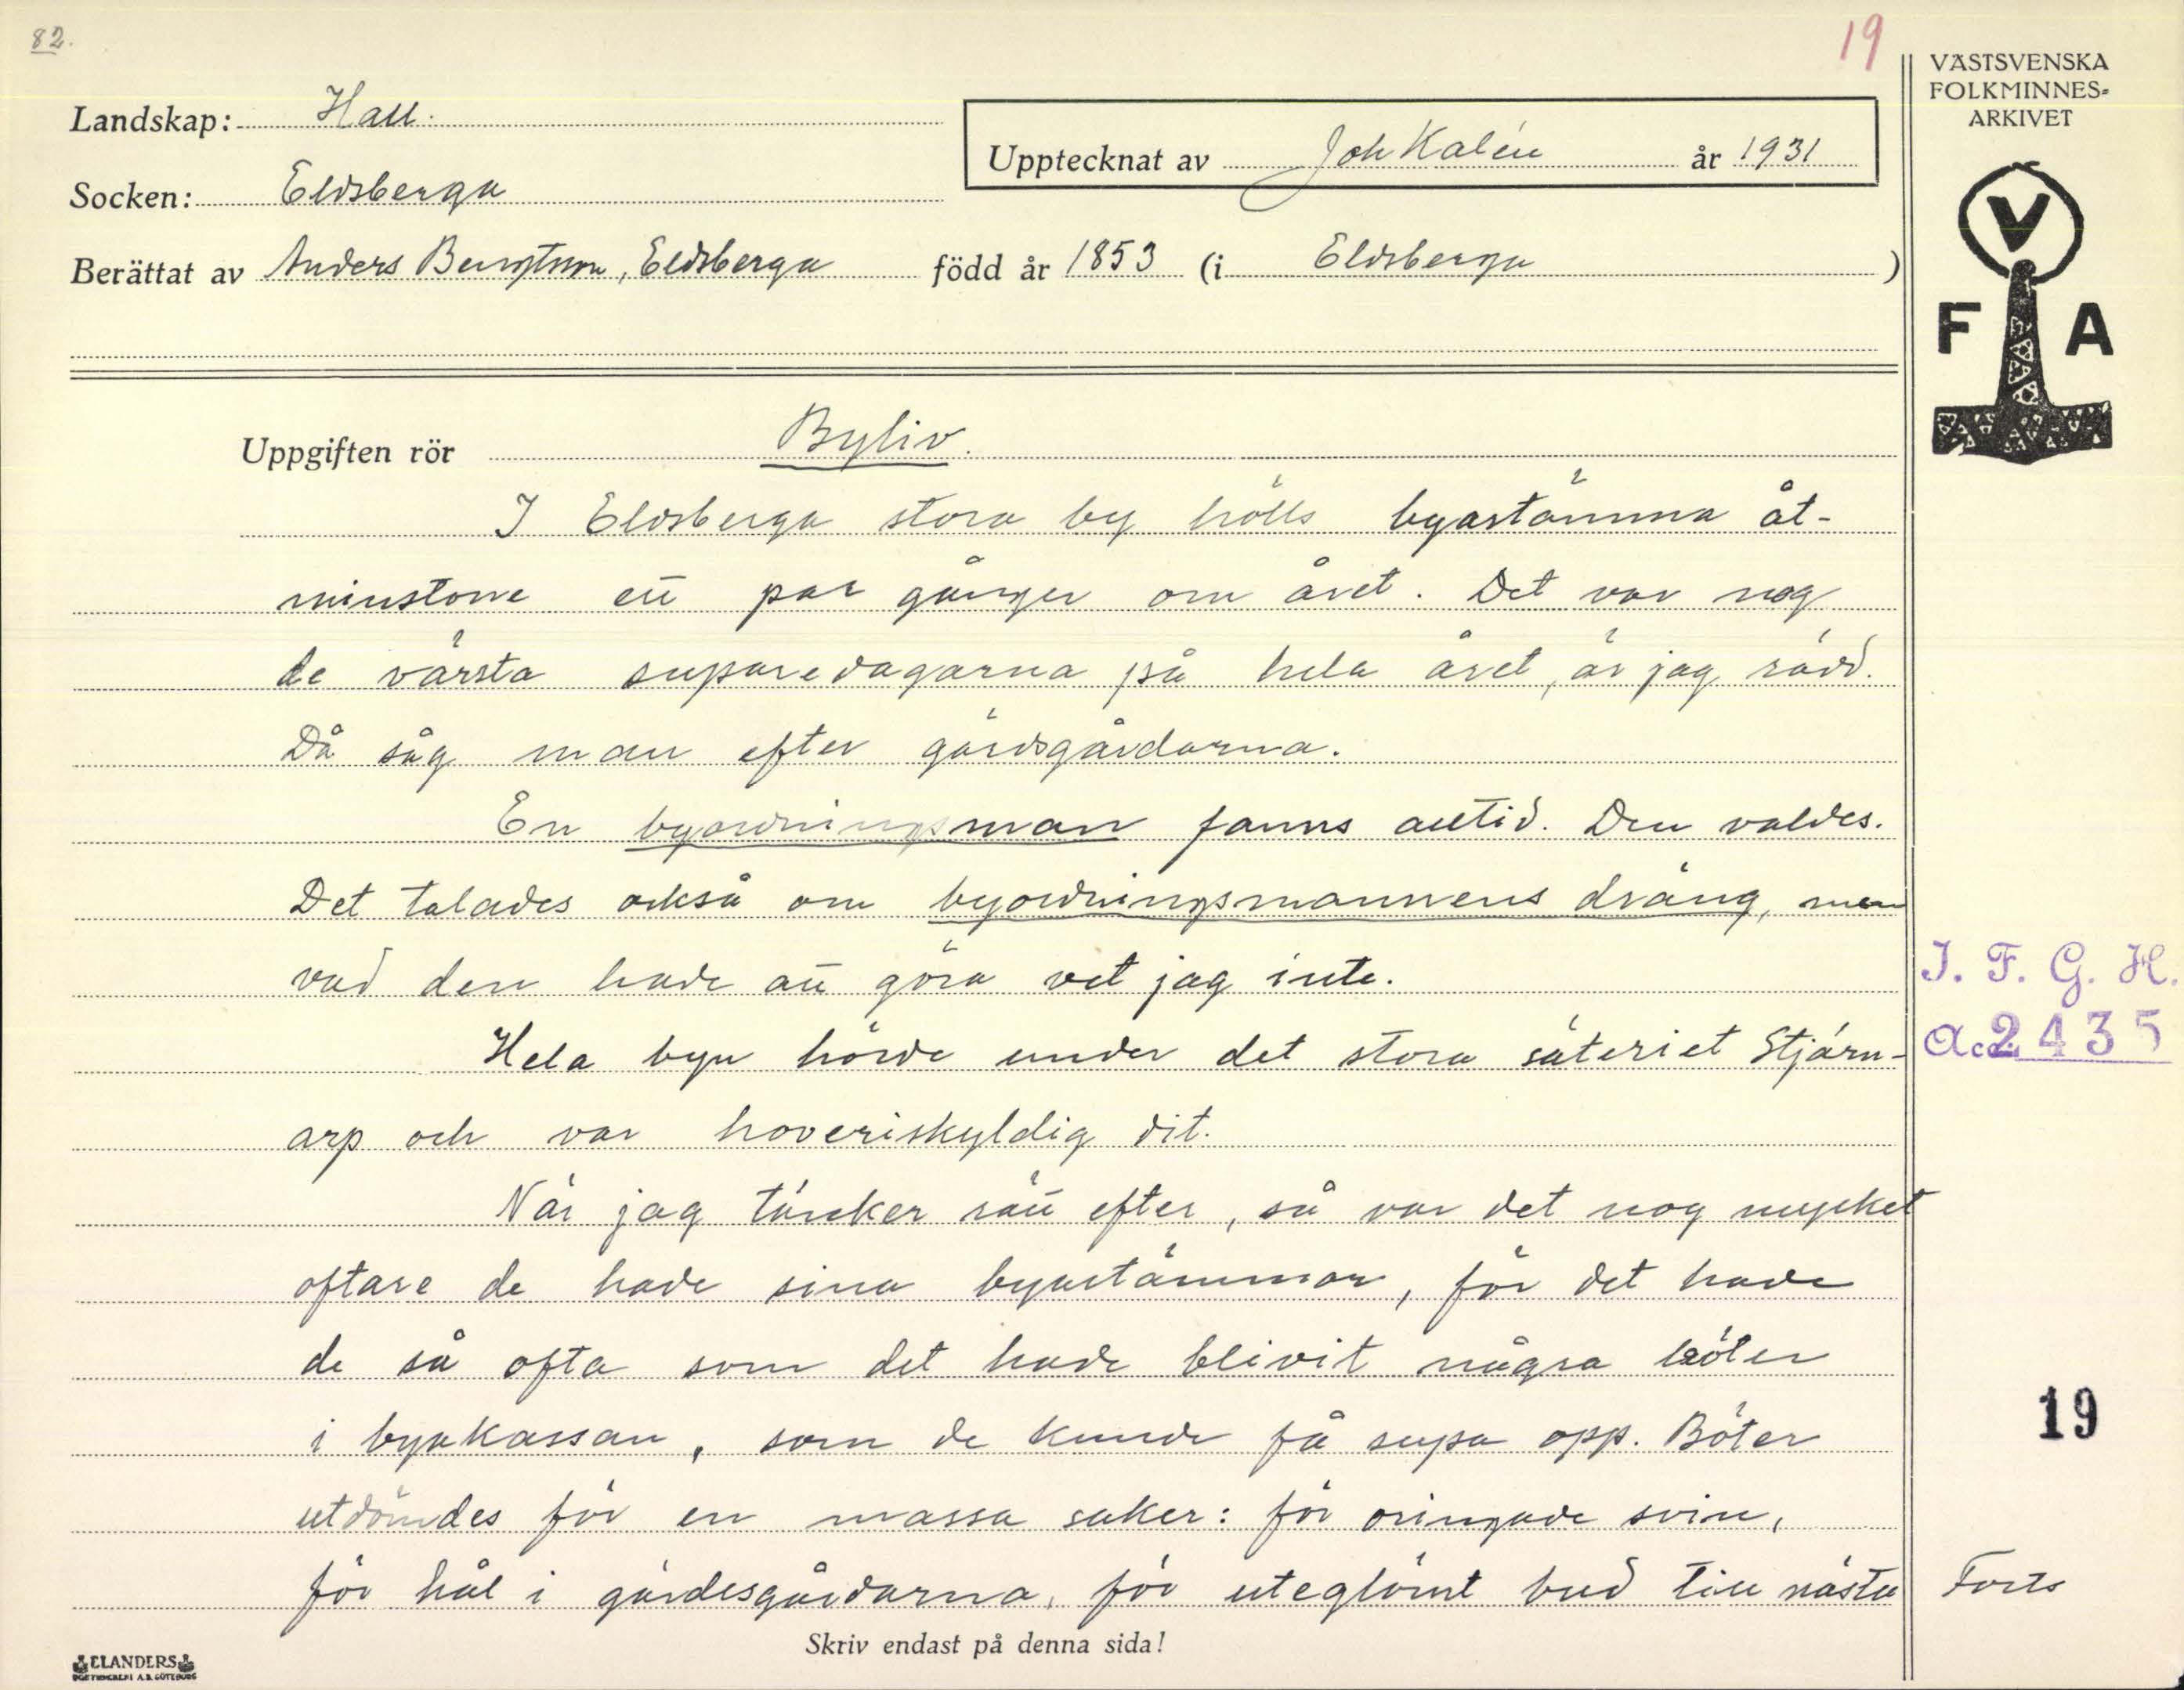 82.
19
VÄSTSVENSKA
FOLKMINNES-
ARKIVET
Landskap: Hall.
Upptecknat av Joh Kalén år 1931
Socken: Eldsberga
Berättat av Anders Bengtsson, Eldsberga född år 1853 (i Eldsberga )
V
F A
Uppgiften rör Byliv.
I Eldsberga stora by hölls byastämma åt-
minstone ett par gånger om året. Det var nog
de värsta superedagarna på hela året, är jag rädd.
Då såg man efter gärdsgårdarna.
En byordningsman fanns alltid. Den valdes.
Det talades också om byordningsmannens dräng, men
vad den hade att göra vet jag inte.
Hela byn hörde under det stora säteriet Stjärn-
arp och var hoveriskyldig dit.
När jag tänker rätt efter, så var det nog mycket
oftare de hade sina byastämmor, för det hade
de så ofta som det hade blivit några böter
i byakassan, som de kunde få supa opp. Böter
utdömdes för en massa saker: för oringade svin,
för hål i gärdesgårdarna, för uteglömt bud till nästa
I. F. G. H.
Acc. 2435
19
Forts
Skriv endast på denna sida!
ELANDERS
BOKTRYCKERI A.B. GÖTEBORG